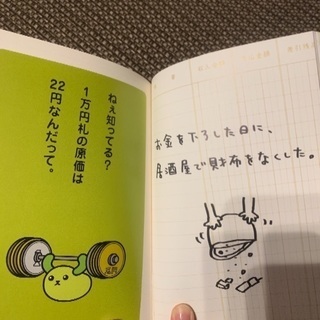 ねぇ知ってる？
１万円札の原価は
22円なんだって。
お金を下ろした日に、
居酒屋で財布をなくした。